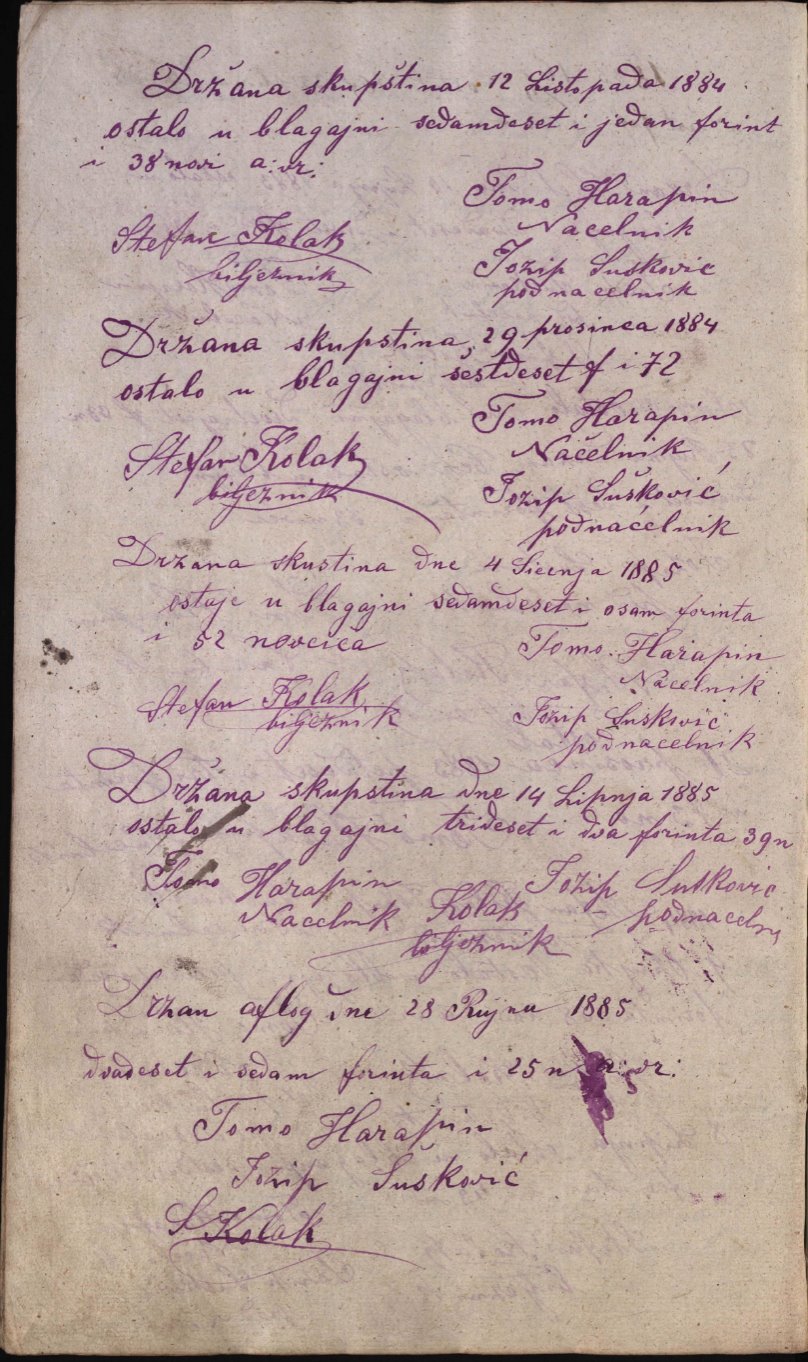 Držana skupština 12 Listopada 1884
ostalo u blagajni sedamdeset i jedan forint
i 38 novi a. vr:
Tomo Harapin
Načelnik
Stefan Kolak
biljeznik
Jozip Susković
podnacelnik
Držana skupstina, 29 prosinca 1884
ostalo u blagajni šestdeset f i 72
Tomo Harapin
Načelnik
Stefan Kolak
biljeznik
Jozip Šušković
podnaćelnik
Drzana skustina dne 4 Siecnja 1885
ostaje u blagajni sedamdeset i osam forinta
i 52 novcica
Tomo Harapin
Nacelnik
Stefan Kolak
biljeznik
Jozip Suskovic
podnacelnik
Držana skupstina dne 14 Lipnja 1885
ostalo u blagajni trideset i dva forinta 39n
Tomo Harapin
Nacelnik
Kolak
biljeznik
Jozip Suskovic
podnacelni
Držan dne 28 Rujna 1885
dvadeset i sedam forinta i 25 n a: vr:
Tomo Harapin
Jozip Šušković
S Kolak